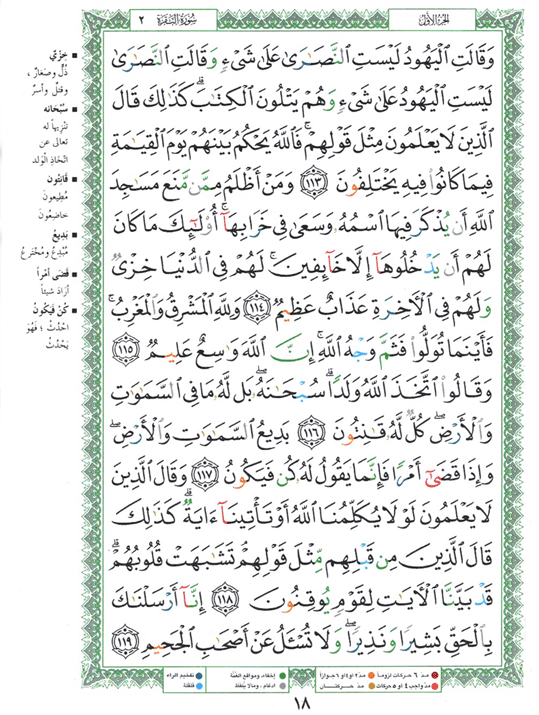 الجزء الأول
سورة البقرة ٢
وَقَالَتِ ٱلْيَهُودُ لَيْسَتِ ٱلنَّصَٰرَىٰ عَلَىٰ شَىْءٍ وَقَالَتِ ٱلنَّصَٰرَىٰ
لَيْسَتِ ٱلْيَهُودُ عَلَىٰ شَىْءٍ وَهُمْ يَتْلُونَ ٱلْكِتَٰبَ ۗ كَذَٰلِكَ قَالَ
ٱلَّذِينَ لَا يَعْلَمُونَ مِثْلَ قَوْلِهِمْ ۚ فَٱللَّهُ يَحْكُمُ بَيْنَهُمْ يَوْمَ ٱلْقِيَٰمَةِ
فِيمَا كَانُوا۟ فِيهِ يَخْتَلِفُونَ ١١٣ وَمَنْ أَظْلَمُ مِمَّن مَّنَعَ مَسَٰجِدَ
ٱللَّهِ أَن يُذْكَرَ فِيهَا ٱسْمُهُۥ وَسَعَىٰ فِى خَرَابِهَآ ۚ أُو۟لَٰٓئِكَ مَا كَانَ
لَهُمْ أَن يَدْخُلُوهَآ إِلَّا خَآئِفِينَ ۚ لَهُمْ فِى ٱلدُّنْيَا خِزْىٌ
وَلَهُمْ فِى ٱلْءَاخِرَةِ عَذَابٌ عَظِيمٌ ١١٤ وَلِلَّهِ ٱلْمَشْرِقُ وَٱلْمَغْرِبُ ۚ
فَأَيْنَمَا تُوَلُّوا۟ فَثَمَّ وَجْهُ ٱللَّهِ ۚ إِنَّ ٱللَّهَ وَٰسِعٌ عَلِيمٌ ١١٥
وَقَالُوا۟ ٱتَّخَذَ ٱللَّهُ وَلَدًا ۗ سُبْحَٰنَهُۥ ۖ بَل لَّهُۥ مَا فِى ٱلسَّمَٰوَٰتِ
وَٱلْأَرْضِ ۖ كُلٌّ لَّهُۥ قَٰنِتُونَ ١١٦ بَدِيعُ ٱلسَّمَٰوَٰتِ وَٱلْأَرْضِ ۖ
وَإِذَا قَضَىٰٓ أَمْرًا فَإِنَّمَا يَقُولُ لَهُۥ كُن فَيَكُونُ ١١٧ وَقَالَ ٱلَّذِينَ
لَا يَعْلَمُونَ لَوْلَا يُكَلِّمُنَا ٱللَّهُ أَوْ تَأْتِينَآ ءَايَةٌ ۗ كَذَٰلِكَ
قَالَ ٱلَّذِينَ مِن قَبْلِهِم مِّثْلَ قَوْلِهِمْ ۘ تَشَٰبَهَتْ قُلُوبُهُمْ ۗ
قَدْ بَيَّنَّا ٱلْءَايَٰتِ لِقَوْمٍ يُوقِنُونَ ١١٨ إِنَّآ أَرْسَلْنَٰكَ
بِٱلْحَقِّ بَشِيرًا وَنَذِيرًا ۖ وَلَا تُسْـَٔلُ عَنْ أَصْحَٰبِ ٱلْجَحِيمِ ١١٩
■ خِزْيٌ
ذُلٌّ وصَغَارٌ ،
وقتلٌ وأسرٌ
■ سُبْحَانه
تنزيهاً له
تعالى عن
اتّخاذِ الولد
■ قانِتُون
مُطِيعونَ
خاضِعُونَ
■ بَدِيعُ
مُبْدِعُ ومُخْترعُ
■ قَضَى أمْراً
أرَادَ شيئاً
■ كُنْ فَيَكُونُ
احْدُثْ ؛ فَهُوَ
يَحْدُثُ
مدّ ٦ حركات لزوماً
مدّ ٢ أو ٤ أو ٦ جوازاً
إخفاء، ومواقع الغُنَّة
تفخيم الراء
مدّ واجب ٤ أو ٥ حركات
مدّ حركتان
ادغام، وما لا يُلفَظ
قلقلة
١٨